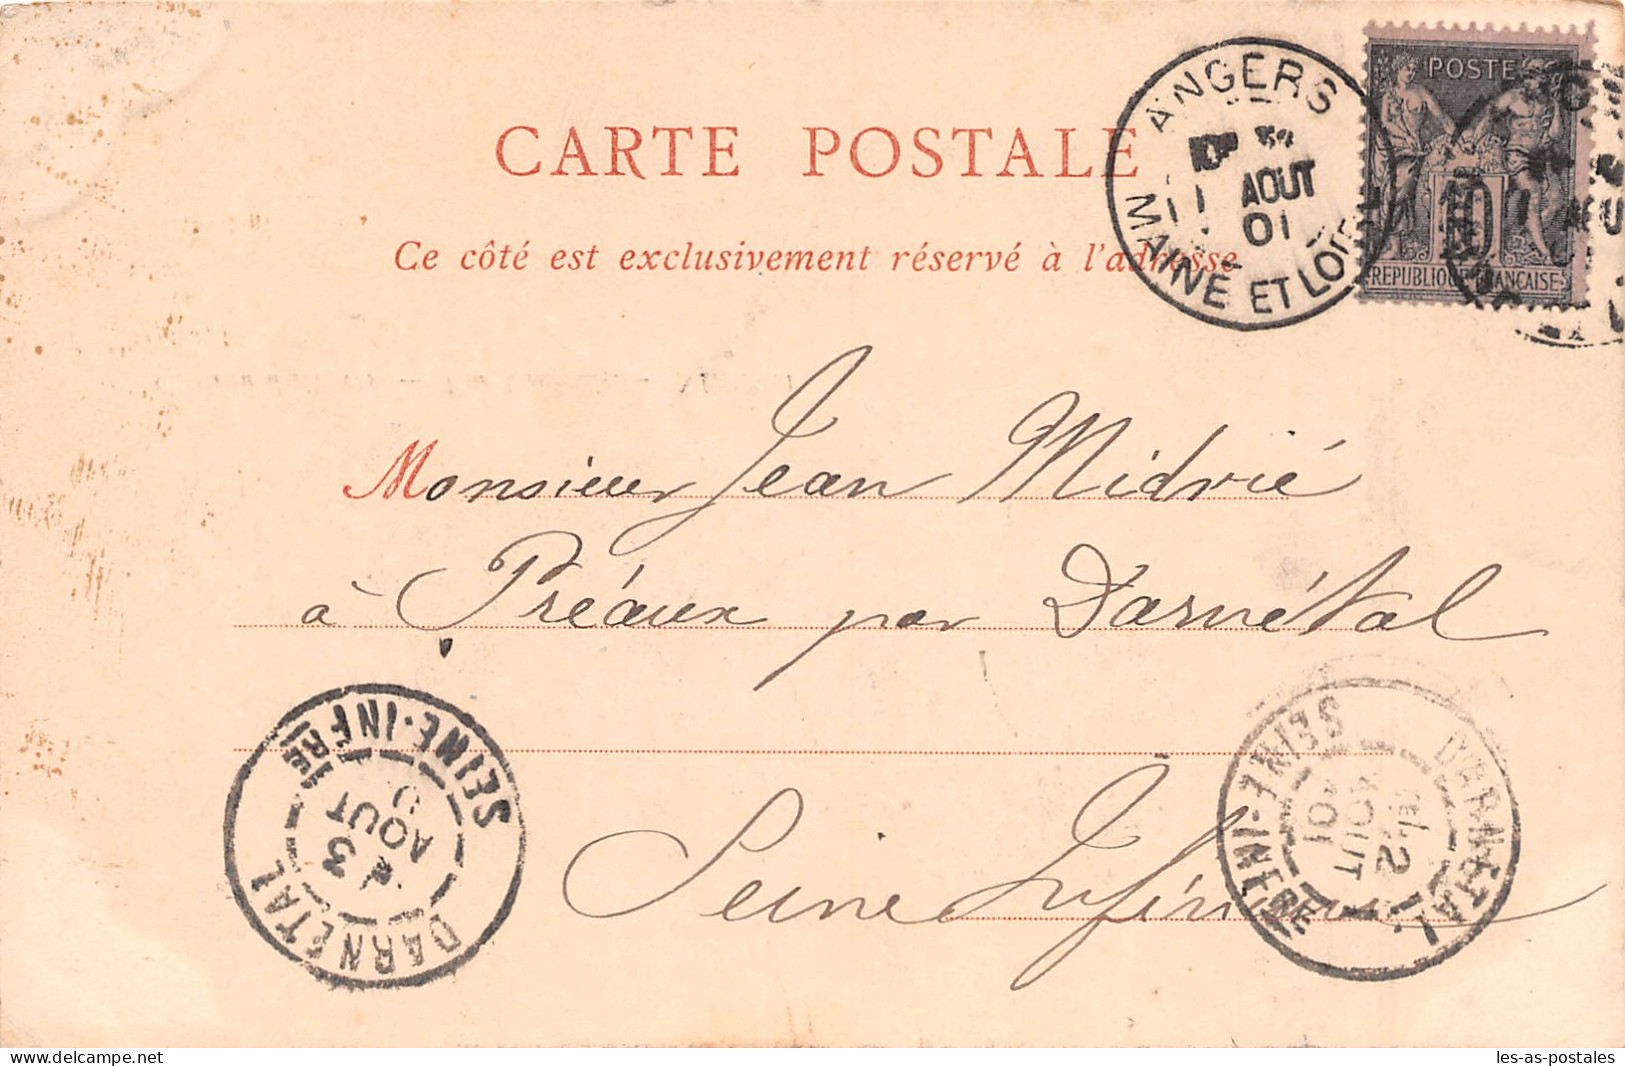 CARTE POSTALE
Ce côté est exclusivement réservé à l'adresse
ANGERS
11 AOUT
01
MAINE ET LOIRE
POSTE
10
REPUBLIQUE FRANCAISE
Monsieur Jean Midrié
à Préaux par Darnétal
Seine Inférieure
DARNETAL
3
AOUT
SEINE-INFRE
DARNETAL
12
AOUT
01
SEINE-INFRE
www.delcampe.net
les-as-postales